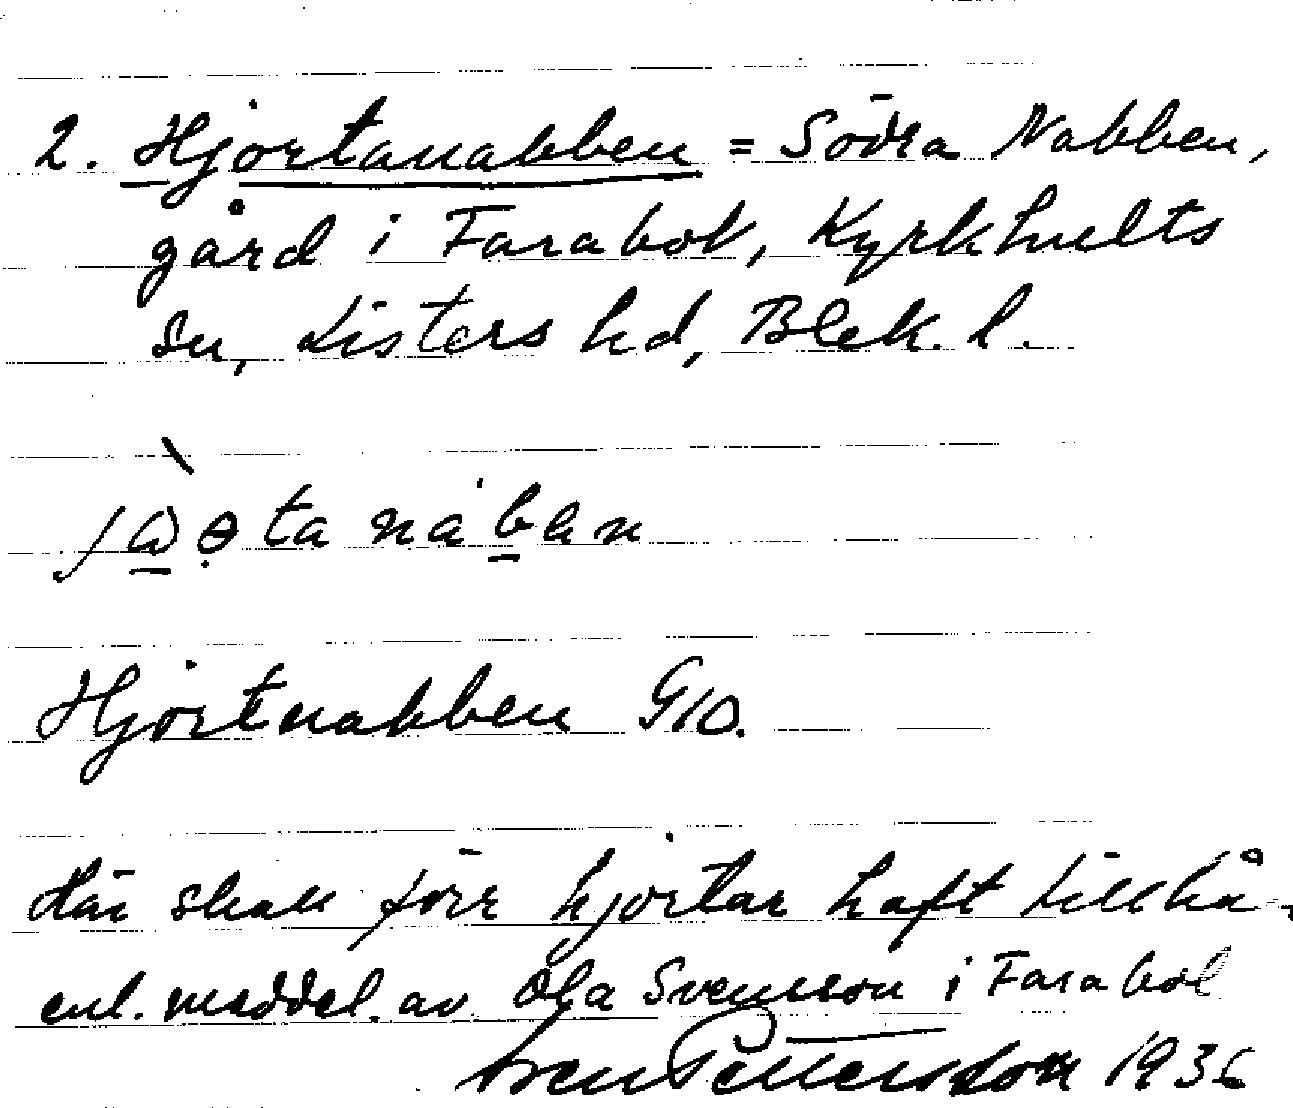 2. Hjortanabben = Södra Nabben,
gård i Farabol, Kyrkhults
sn, Listers hd, Blek. l.
Hjortnabben GK.
Här skall förr hjortar haft tillhå-
enl. meddel. av Ola Svensson i Farabol
Sven Pettersson 1936